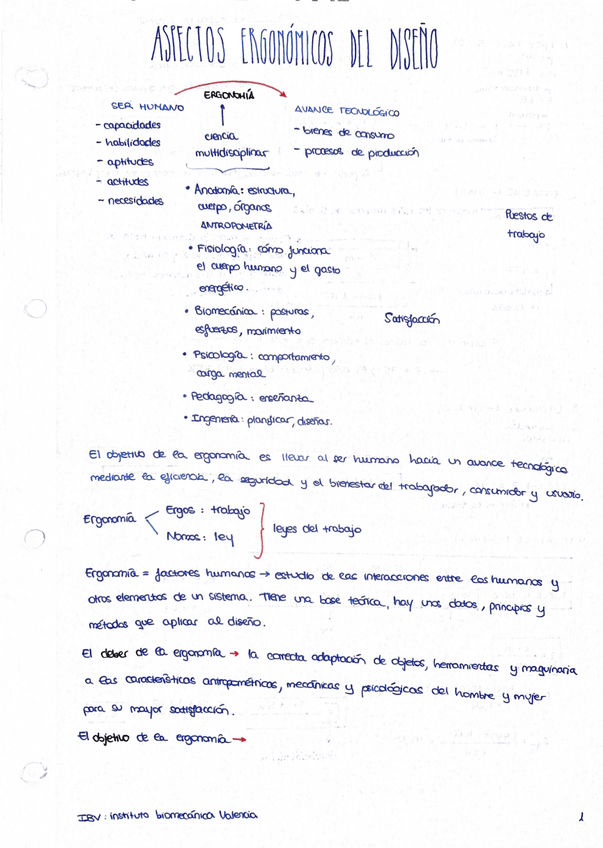 ASPECTOS ERGONÓMICOS DEL DISEÑO
ERGONOMÍA
SER HUMANO
- capacidades
- habilidades
- aptitudes
- actitudes
- necesidades
ciencia
multidisciplinar
AVANCE TECNOLÓGICO
- bienes de consumo
- procesos de producción
• Anatomía: estructura,
cuerpo, órganos
ANTROPOMETRÍA
• Fisiología: cómo funciona
el cuerpo humano y el gasto
energético.
• Biomecánica: posturas,
esfuerzos, movimiento
• Psicología: comportamiento,
carga mental
• Pedagogía: enseñanza
• Ingeniería: planificar, diseñar.
Puestos de
trabajo
Satisfacción
El objetivo de la ergonomía es llevar al ser humano hacia un avance tecnológico
mediante la eficiencia, la seguridad y el bienestar del trabajador, consumidor y usuario.
Ergonomía
Ergos: trabajo
Nomos: ley
leyes del trabajo
Ergonomía = factores humanos → estudio de las interacciones entre los humanos y
otros elementos de un sistema. Tiene una base teórica, hay unos datos, principios y
métodos que aplicar al diseño.
El deber de la ergonomía → la correcta adaptación de objetos, herramientas y maquinaria
a las características antropométricas, mecánicas y psicológicas del hombre y mujer
para su mayor satisfacción.
El objetivo de la ergonomía →
IBV: instituto biomecánica Valencia
1